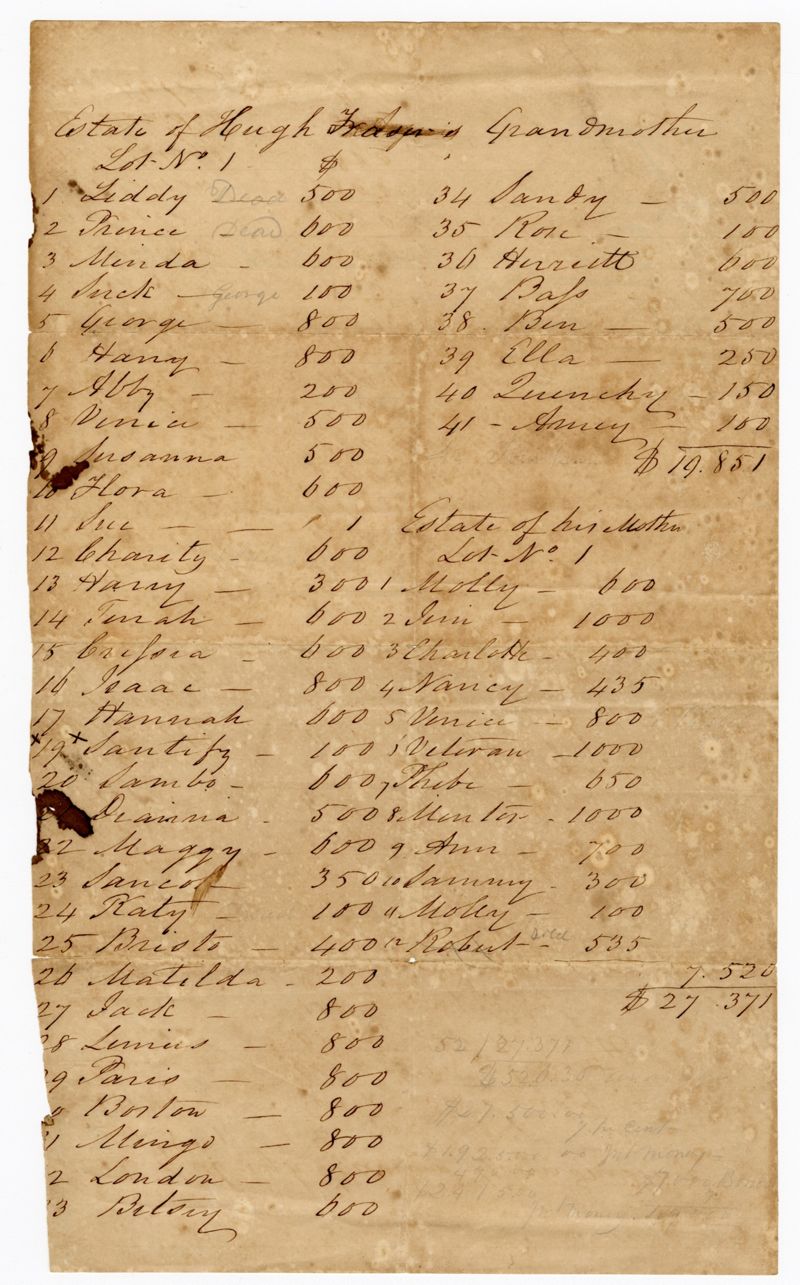 Estate of Hugh Fraser's Grandmother
Lot No. 1 $
1 Liddy Dead 500
2 Prince Dead 600
3 Minda - 600
4 Suck - George 100
5 George - 800
6 Harry - 800
7 Abby - 200
8 Venice - 500
9 Susanna 500
10 Flora - 600
11 Sue - - 1
12 Charity - 600
13 Harry - 300
14 Tenah - 600
15 Cressia - 600
16 Isaac - 800
17 Hannah 600
x19 x Santify - 100
20 Sambo - 600
Dianna - 500
22 Maggy - 600
23 Sancol 350
24 Katy - 100
25 Bristo - 400
26 Matilda - 200
27 Jack - 800
28 Linius - 800
29 Paris - 800
0 Boston - 800
1 Mingo - 800
2 London - 800
33 Betsey 600
34 Sandy - 500
35 Rose - 100
36 Herriett 600
37 Bass 700
38. Ben - 500
39 Ella - 250
40 Quenchy - 150
41 - Amey - 100
$ 19.851
Estate of his Mother
Lot No. 1
1 Molly - 600
2 Jim - 1000
3 Charlotte - 400
4 Nancy - 435
5 Venice - 800
Veteran - 1000
7 Phibe - 650
8 Mentor - 1000
9 Ann - 700
10 Sammy - 300
11 Molly - 100
12 Robert - Dead 535
7.520
$ 27.371
52 / 27.371
$526.36